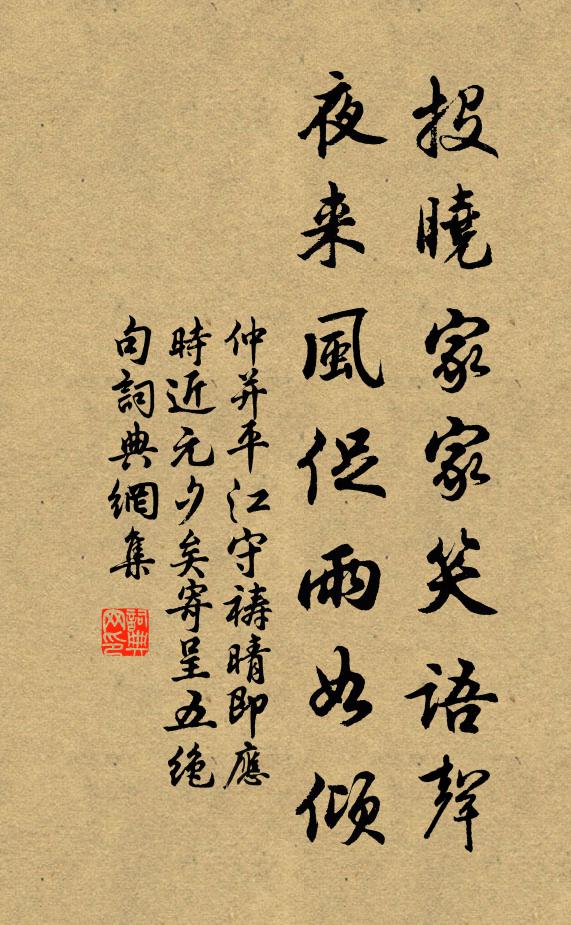 投曉家家笑語聲
夜来風促雨如傾
仲并平江守禱晴即應
時近元夕矣寄呈五绝
句詞典網集
詞典网印